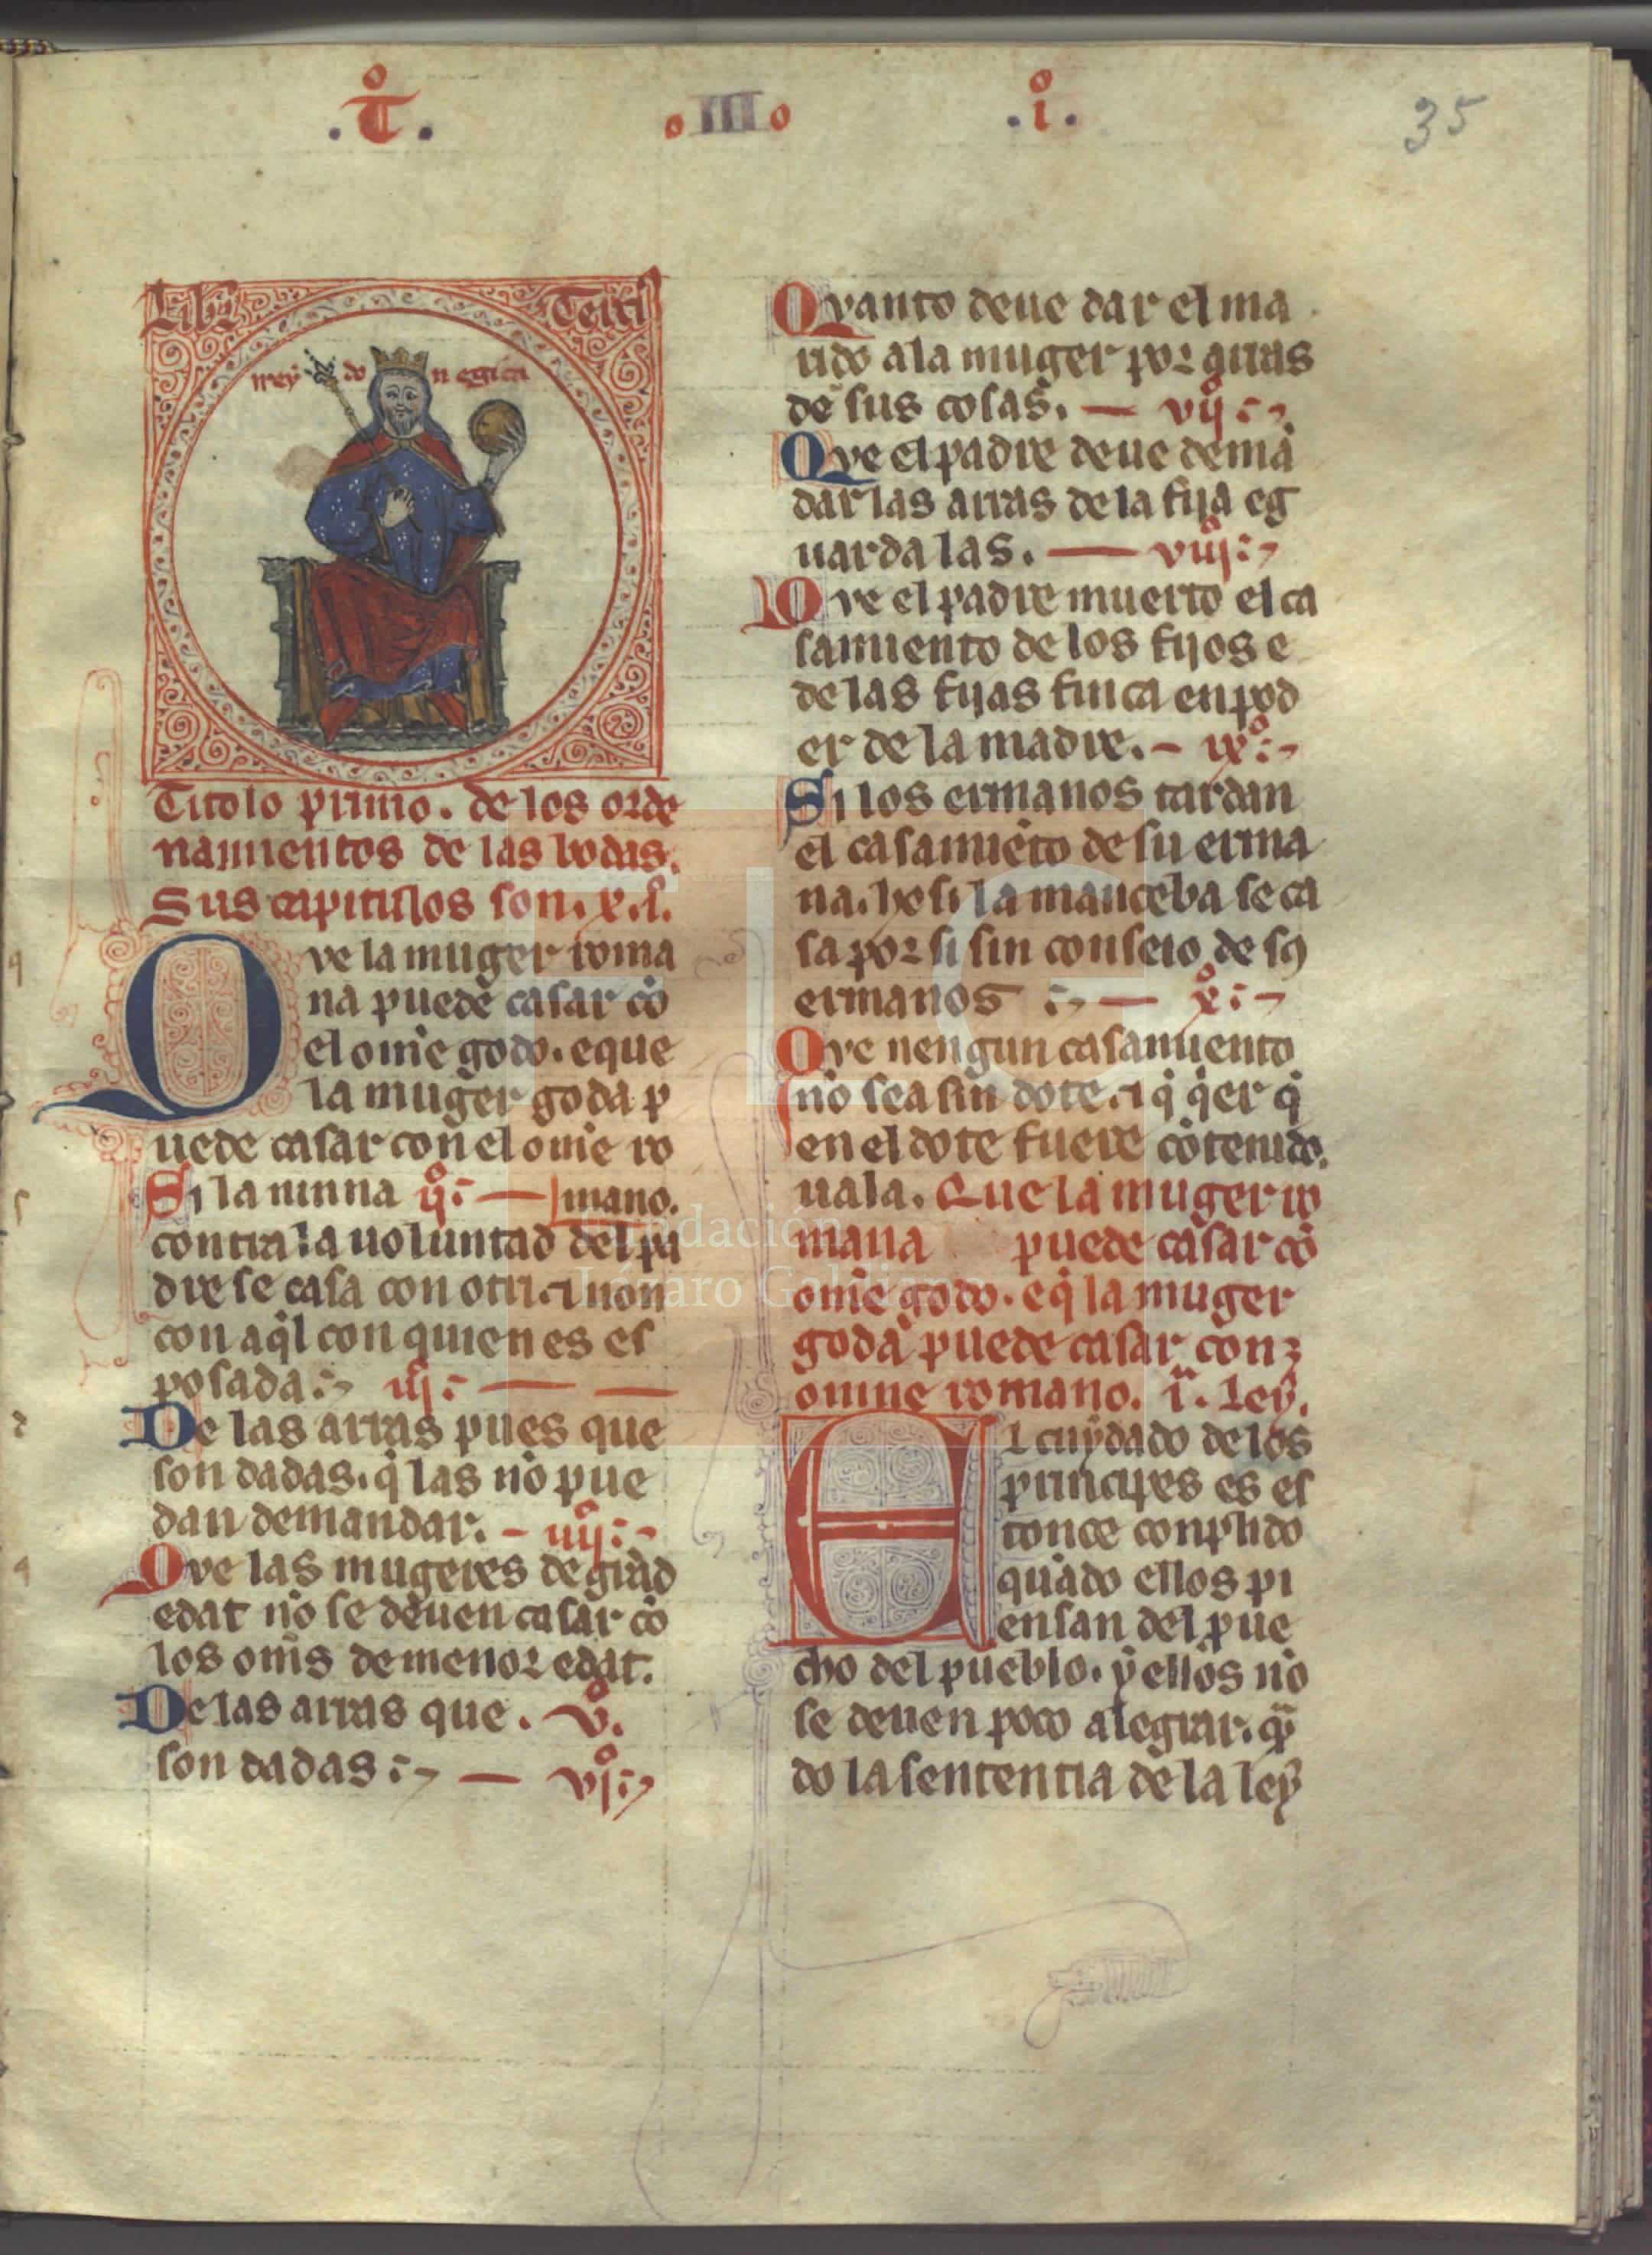 .T̊. oIIIo .i̊.
35
Libr Terci
rrey do n egica
Titolo primo. de los orde
namientos de las bodas.
Sus capitulos son. x. i.
Que la muger roma
na puede casar cō
el ome godo. e que
la muger goda p
uede casar con el ome ro
mano.
Si la ninna ij:
contra la uoluntad del pa
dre se casa con otri. ⁊ non
con aq̄l con quien es es
posada: iij:
De las arras pues que
son dadas. q̄ las nō pue
dan demandar. iiij:
Que las mugeres de grād
edat nō se deuen casar cō
los om̄s de menor edat.
De las arras que. v.
son dadas: vj:
Quanto deue dar el ma
rido a la muger por arras
de sus cosas. vij:
Que el padre deue demā
dar las arras de la fija eg
uardalas. viij:
Que el padre muerto el ca
samiento de los fijos e
de las fijas finca en pod
er de la madre. ix:
Si los ermanos tardan
el casamiēto de su erma
na. ho si la manceba se ca
sa por si sin conseio de sus
ermanos x:
Que nengun casamiento
nō sea sin dote. ⁊ q̄ q̄er q̄
en el dote fuere cōtenido.
uala. Que la muger ro
mana puede casar cō
ome godo. e q̄ la muger
goda puede casar con
omne romano. i. Ley.
El cuydado de los
principes es es
tonce conplido
quādo ellos pi
ensan del pue
cho del pueblo. y ellos nō
se deuen poco alegrar. q̄n
do la sententia de la ley
FLG
Fundación
Lázaro Galdiano